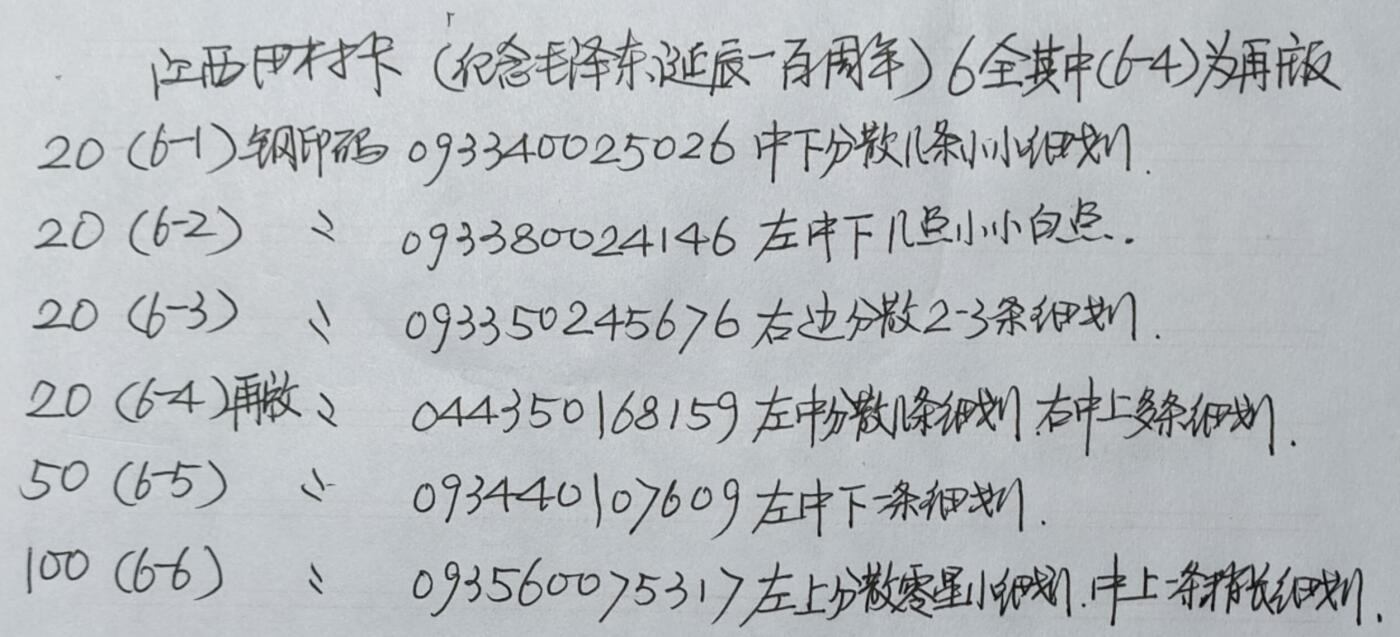 江西田村卡（纪念毛泽东诞辰一百周年）6全其中(6-4)为再版
20 (6-1) 钢印码 093340025026 中下分散几条小小细划.
20 (6-2) 〃 093380024146 左中下几点小小白点.
20 (6-3) 〃 093350245676 右边分散2-3条细划.
20 (6-4)再版〃 044350168159 左中分散几条细划.右中上多条细划.
50 (6-5) 〃 093440107609 左中下一条细划.
100 (6-6) 〃 093560075317 左上分散零星小细划.中上一条稍长细划.